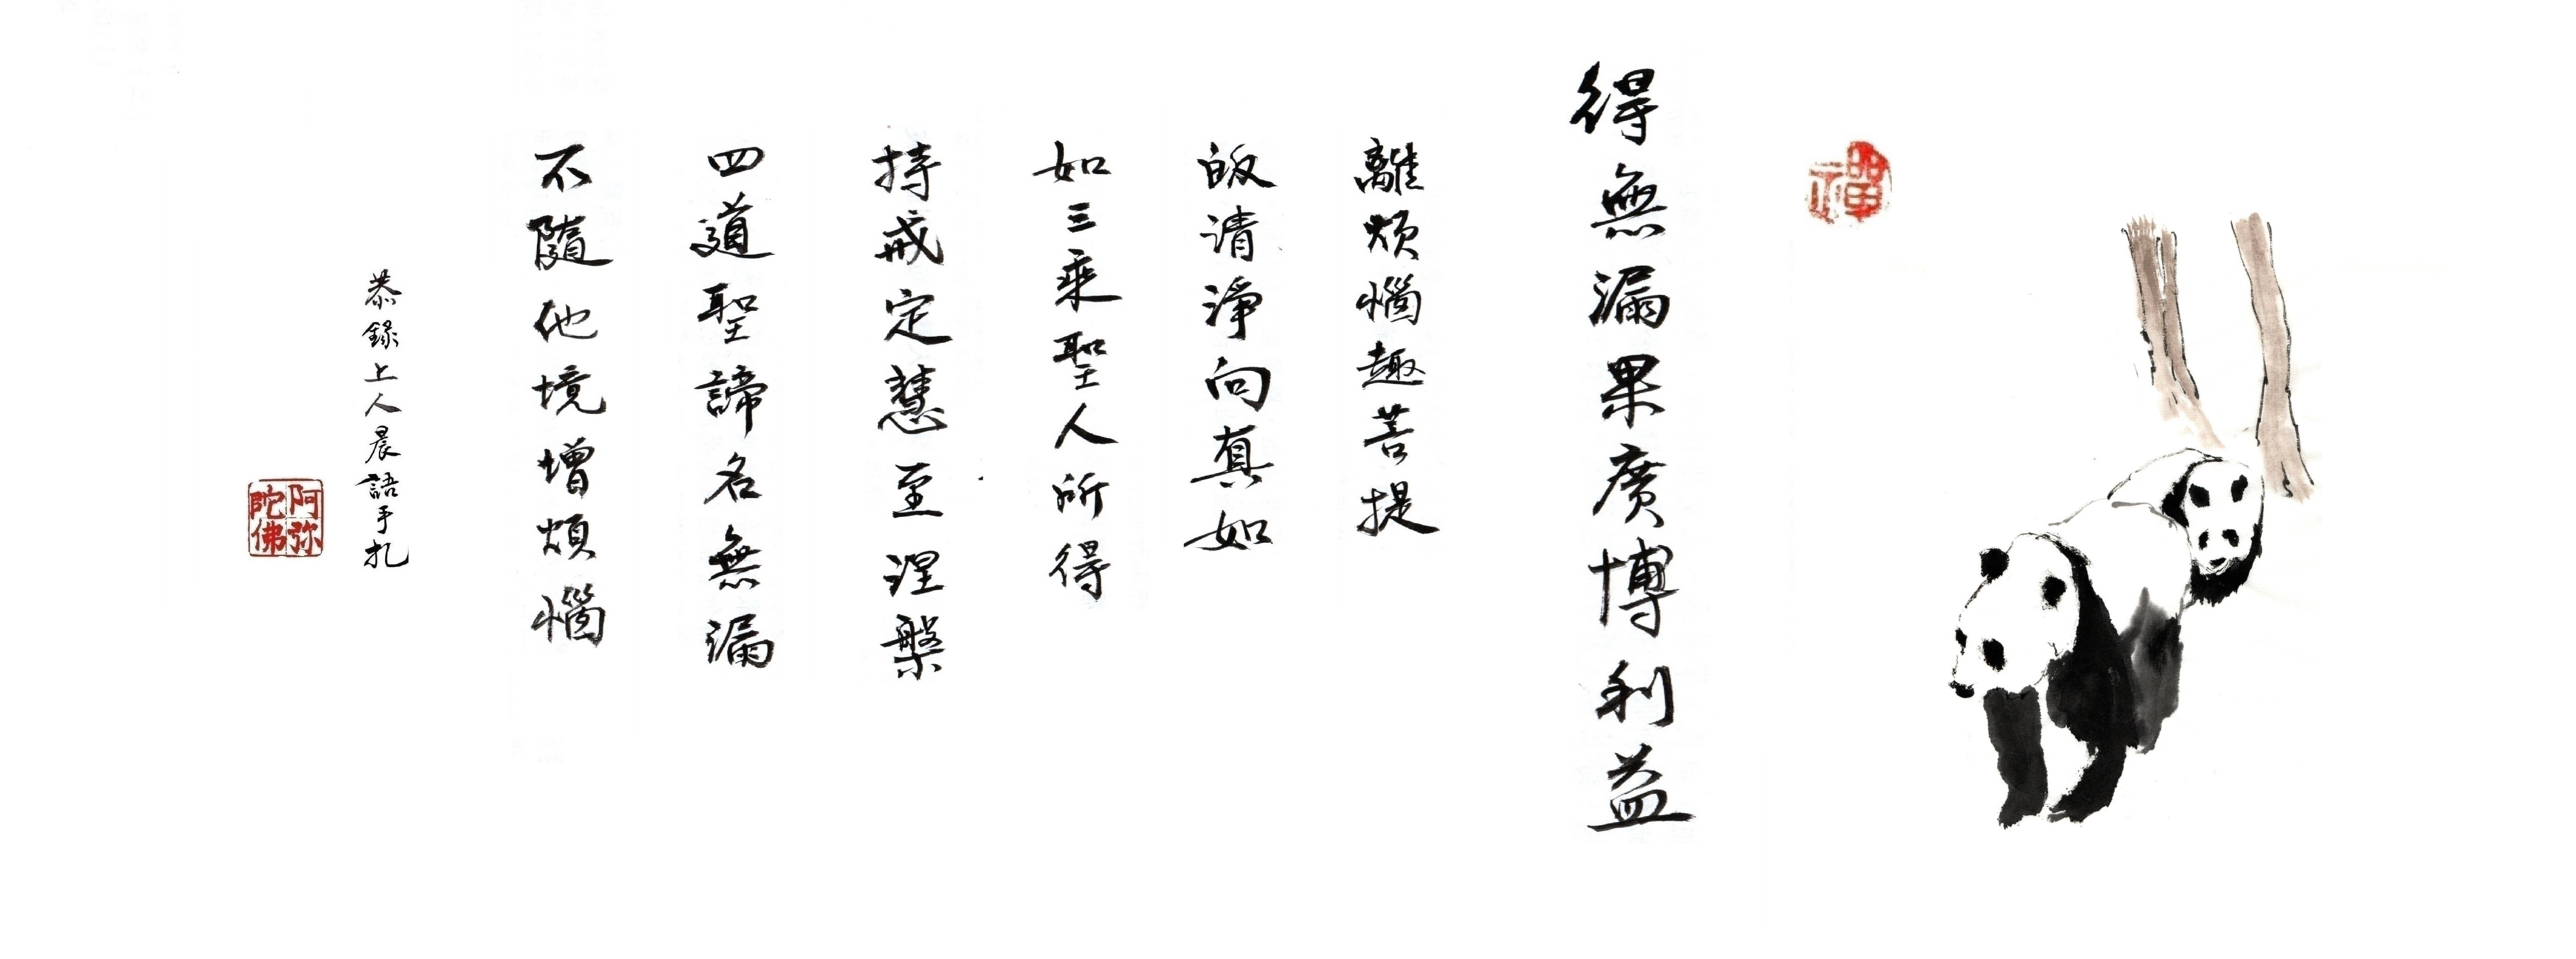 禪
得無漏果廣博利益
離煩惱趣菩提
皈清淨向真如
如三乘聖人所得
持戒定慧至涅槃
四道聖諦名無漏
不隨他境增煩惱
恭錄上人晨語手札
阿弥陀佛